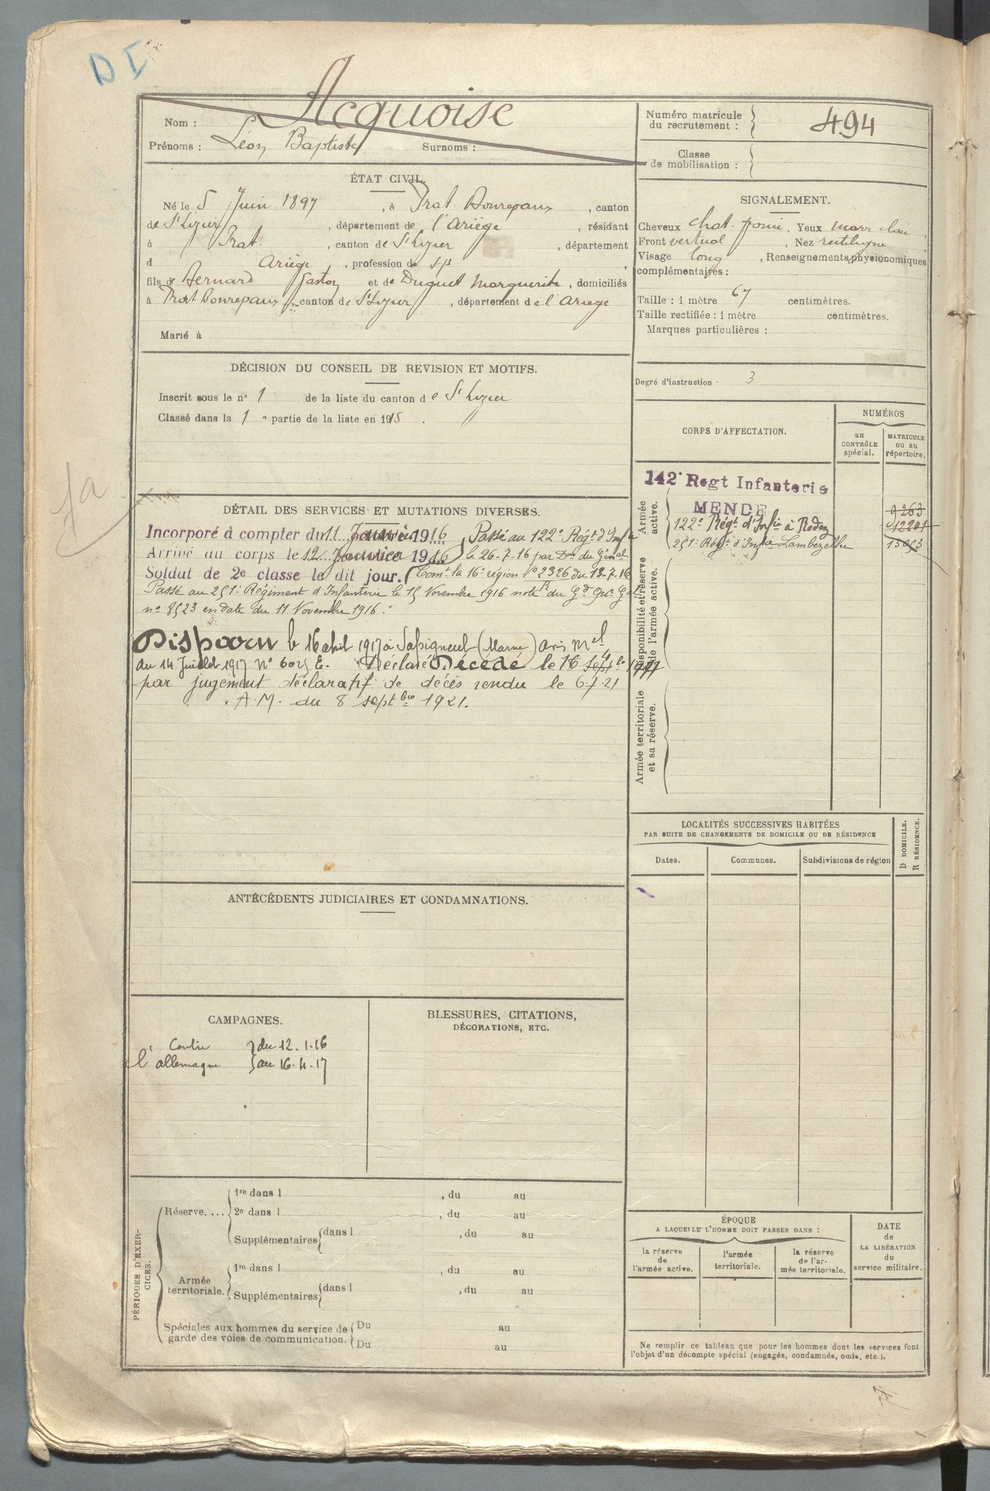 DI
Nom : Acquoise
Prénoms : Léon Baptiste Surnoms :
Numéro matricule du recrutement : 494
Classe de mobilisation :
ÉTAT CIVIL.
Né le 5 Juin 1897, à Prat Bonrepaux, canton
de St Lizier, département de l'Ariège, résidant
à Prat, canton de St Lizier, département
d Ariège, profession de s.p.
fils de Bernard Gaston et de Duguet Marguerite, domiciliés
à Prat Bonrepaux, canton de St Lizier, département de l'Ariège
Marié à
SIGNALEMENT.
Cheveux chat. foncé, Yeux marr clair
Front vertical, Nez rectiligne
Visage long, Renseignements physionomiques
complémentaires :
Taille : 1 mètre 67 centimètres.
Taille rectifiée : 1 mètre centimètres.
Marques particulières :
Degré d'instruction · 3
DÉCISION DU CONSEIL DE REVISION ET MOTIFS.
Inscrit sous le n° 1 de la liste du canton de St Lizier
Classé dans la 1e partie de la liste en 1915.
DÉTAIL DES SERVICES ET MUTATIONS DIVERSES.
Incorporé à compter du 11 Janvier 1916 Passé au 122e Régt d'Infie
Arrivé au corps le 12 Janvier 1916 le 26-7-16 par Don du Génal
Soldat de 2e classe le dit jour. Comt la 16e région No 2326 du 13.7.16
Passé au 251e Régiment d'Infanterie le 15 Novembre 1916 note du Gd Qrt Gal
no 8523 en date du 11 Novembre 1916.
Disparu le 16 avril 1917 à Sapigneul (Marne) avis Mel
du 14 Juillet 1917 No 6025 E. Déclaré Décédé le 16
par jugement déclaratif de décès rendu le 6-7-21
A.M. du 8 septbre 1921.
CORPS D'AFFECTATION.
NUMÉROS
au CONTRÔLE spécial.
MATRICULE ou au répertoire.
Armée active.
142e Regt Infanterie
MENDE 9263
122e Régt d'Infie à Rodez
251e Régt d'Infie Lambezellec
Disponibilité et réserve de l'armée active.
Armée territoriale et sa réserve.
LOCALITÉS SUCCESSIVES HABITÉES
PAR SUITE DE CHANGEMENTS DE DOMICILE OU DE RÉSIDENCE
Dates. Communes. Subdivisions de région
D DOMICILE.
R RÉSIDENCE.
ANTÉCÉDENTS JUDICIAIRES ET CONDAMNATIONS.
CAMPAGNES.
Contre du 12.1.16
l'allemagne au 16.4.17
BLESSURES, CITATIONS,
DÉCORATIONS, ETC.
PÉRIODES D'EXERCICES.
Réserve. ...
1re dans l , du au
2e dans l , du au
Supplémentaires dans l , du au
Armée territoriale.
1re dans l , du au
Supplémentaires dans l , du au
Spéciales aux hommes du service de Du au
garde des voies de communication. Du au
ÉPOQUE
A LAQUELLE L'HOMME DOIT PASSER DANS :
la réserve de l'armée active.
l'armée territoriale.
la réserve de l'armée territoriale.
DATE de LA LIBÉRATION du service militaire.
Ne remplir ce tableau que pour les hommes dont les services font
l'objet d'un décompte spécial (engagés, condamnés, omis, etc.).